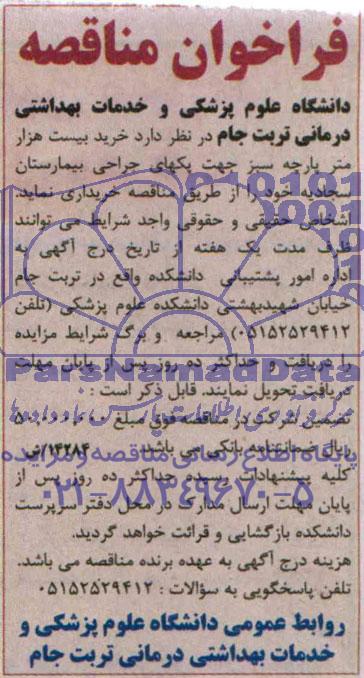 فراخوان مناقصه
دانشگاه علوم پزشکی و خدمات بهداشتی
درمانی تربت جام در نظر دارد خرید بیست هزار
متر پارچه سبز جهت پکهای جراحی بیمارستان
سجادیه خود را از طریق مناقصه خریداری نماید.
اشخاص حقیقی و حقوقی واجد شرایط می توانند
ظرف مدت یک هفته از تاریخ درج آگهی به
اداره امور پشتیبانی دانشکده واقع در تربت جام
خیابان شهیدبهشتی دانشکده علوم پزشکی (تلفن
۰۵۱۵۲۵۲۹۴۱۲) مراجعه و برگ شرایط مزایده
را دریافت و حداکثر ده روز پس از پایان مهلت
دریافت تحویل نمایند. قابل ذکر است :
تضمین شرکت در مناقصه فوق مبلغ
ریال ضمانتنامه بانکی می باشد. ۱۴۲۸۴/ش
کلیه پیشنهادات رسیده حداکثر ده روز پس از
پایان مهلت ارسال مدارک در محل دفتر سرپرست
دانشکده بازگشایی و قرائت خواهد گردید.
هزینه درج آگهی به عهده برنده مناقصه می باشد.
تلفن پاسخگویی به سؤالات : ۰۵۱۵۲۵۲۹۴۱۲
روابط عمومی دانشگاه علوم پزشکی و
خدمات بهداشتی درمانی تربت جام
ParsNamadData
پایگاه اطلاع رسانی مناقصه و مزایده
۰۲۱-۸۸۳۴۹۶۷۰-۵